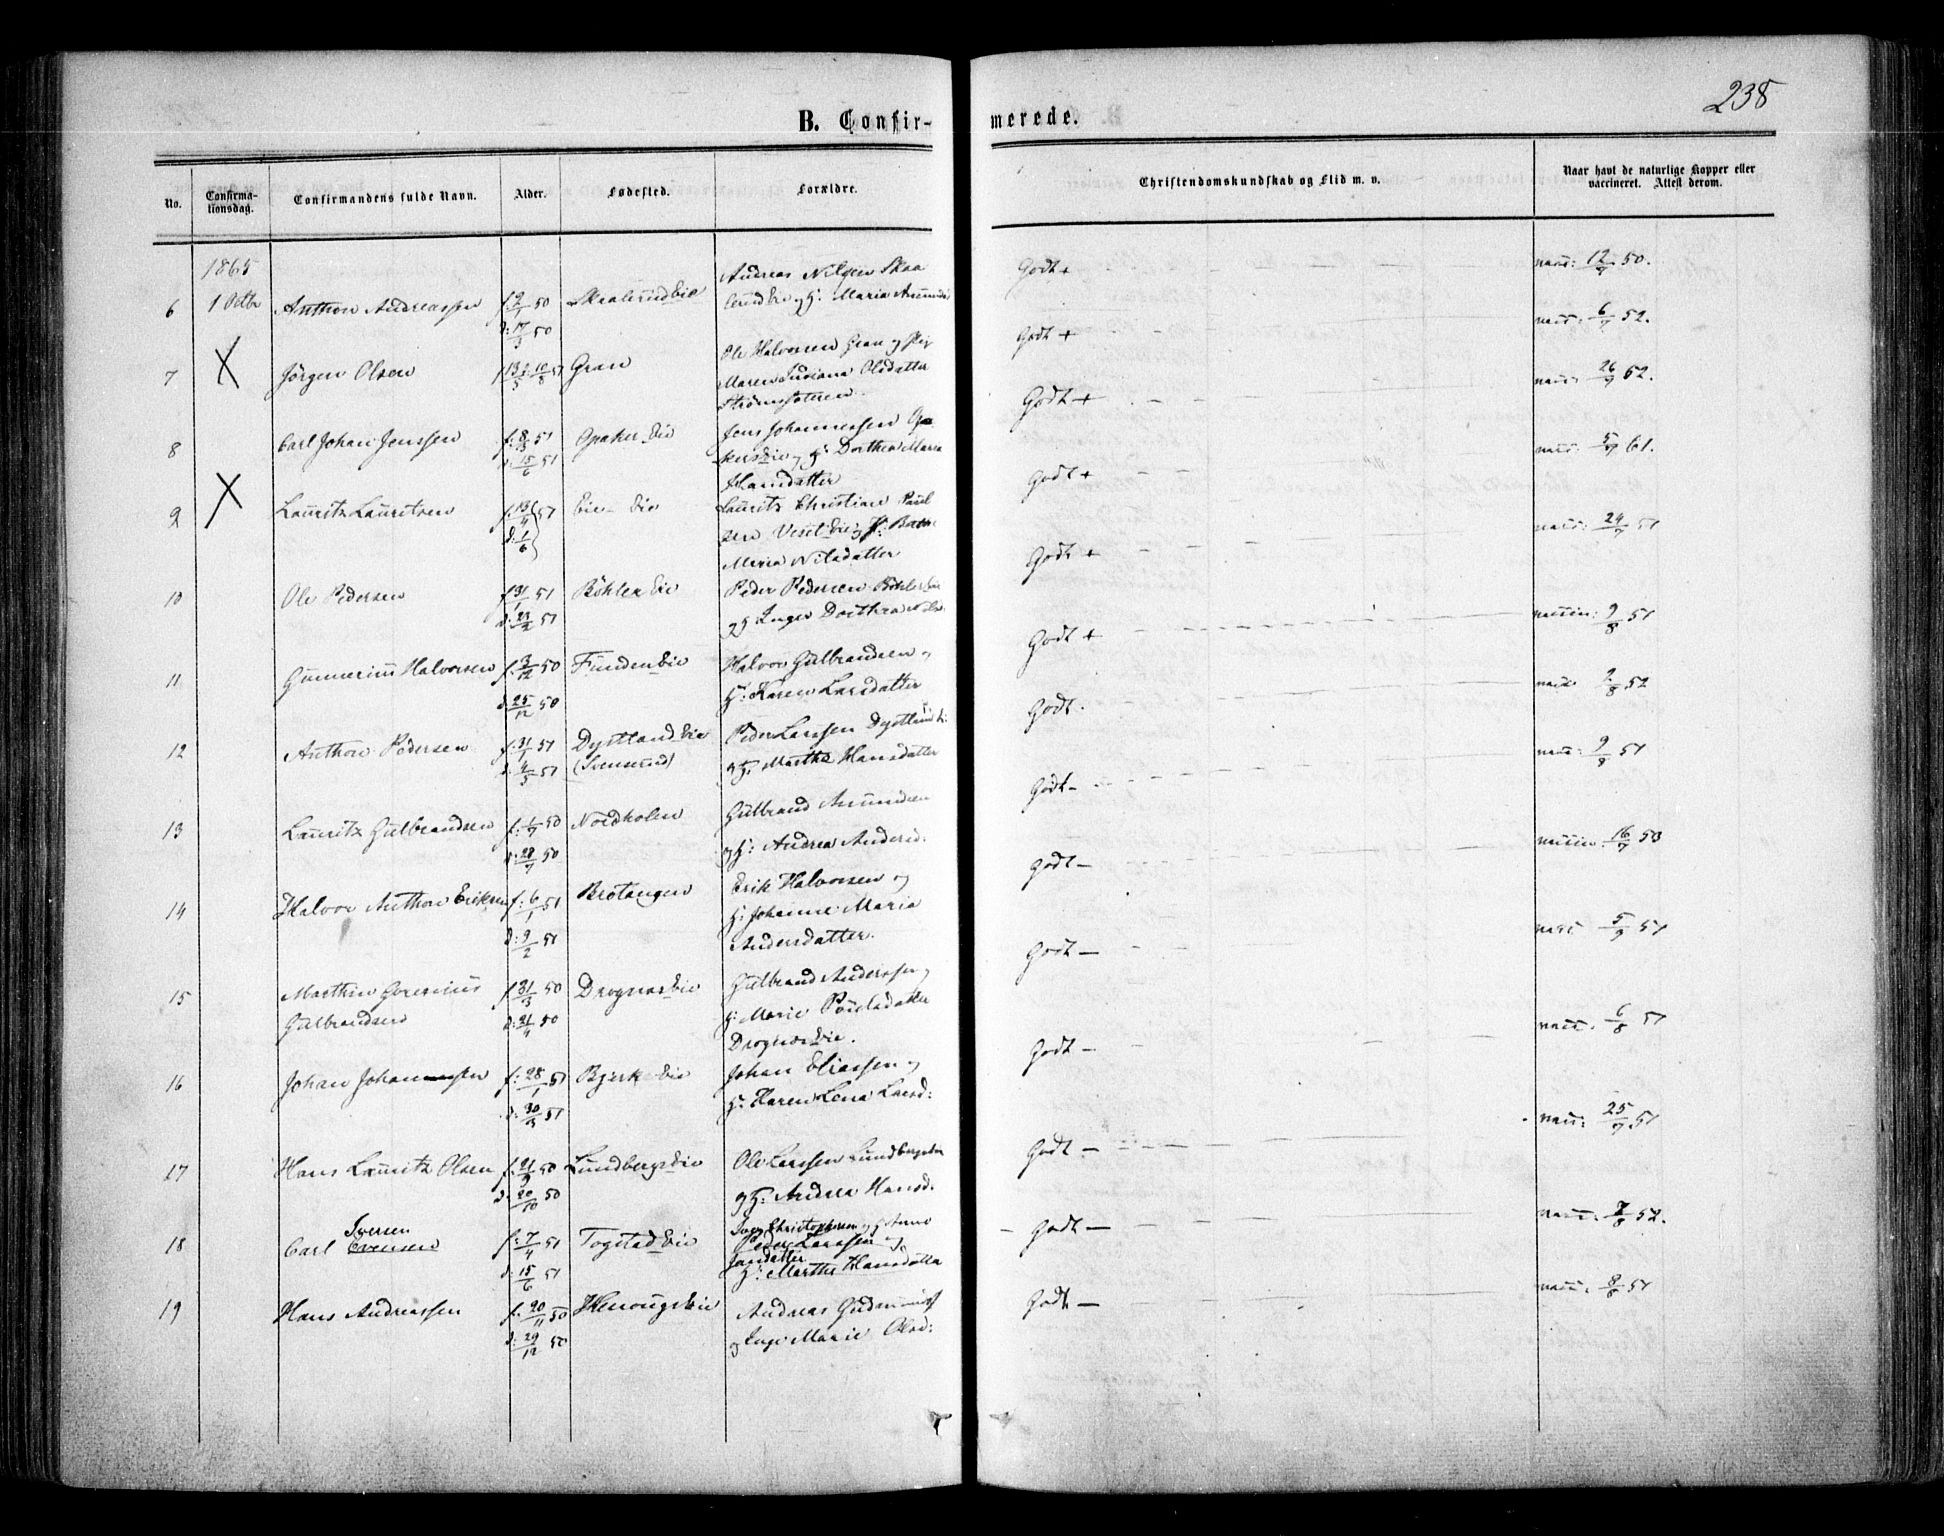 238
B. Confir-
merede.
No.
Confirma-
tionsdag.
Confirmandens fulde Navn.
Alder.
Fødested.
Forældre.
Christendomskundskab og Flid m. v.
Naar havt de naturlige Kopper eller
vaccineret. Attest derom.
1865
6 1 Octbr Anthon Andreassen f: 2/1 50 d: 17/3 50
Andreas Nilsen
og H: Maria
Godt +
vacc: 12/7 50.
7 Jörgen Olsen Gran
Ole Halvorsen Gran og
Maren Olsdatter
Godt +
vacc: 6/7 52.
8 Carl Johan Jenssen f: 8/3 51 d: 15/6 51 Opaker Eie
Jens Johannesen
og H: Dorthea Maria
Hansdatter
Godt +
vacc: 26/9 52.
9 Lauritz Lauritsen f: 13/4 d: 1/6 51 Eie
Lauritz Christian Paul
sen
Maria Nilsdatter
Godt +
vacc: 5/7 61.
10 Ole Pedersen f: 31/1 51 d: 23/2 51 Böhler Eie
Peder Pedersen Böhler Eie
og H Inger Dorthea
Godt +
vacc: 24/7 51
11 Gunnerius Halvorsen f: 3/12 50 d: 25/12 50 Funden Eie
Halvor Gulbrandsen og
H: Karen Larsdatter
Godt +
vaccin: 9/8 51
12 Anthon Pedersen f: 31/1 51 d: 4/5 51 Dystland Eie
(Svensrud)
Peder Larssen Dystland E:
og H: Marthe Hansdatter
Godt.
vacc 9/8 52
13 Lauritz Gulbrandsen f: 1/7 50 d: 28/7 50 Nordholen
Gulbrand Amundsen
og H: Andrea Andersd.
Godt –
vacc: 9/8 51
14 Halvor Anthon Eriksen f: 6/1 51 d: 9/2 51 Brotangen
Erik Halvorsen og
H: Johanne Maria
Andersdatter.
Godt –
vaccin: 16/7 53
15 Marthin Gverenius
Gulbrandsen f 31/3 50 d: 21/4 50 Drognæs Eie
Gulbrand Anderssen og
H: Marie Poulsdatter
Drognæs Eie.
Godt –
vacc 5/9 51
16 Johan Johannessen f: 28/1 51 d: 30/3 51 Bjerke Eie
Johan Eliassen og
H: Karen Lena Larsd:
Godt –
vacc. 6/8 51
17 Hans Lauritz Olsen f: 21/9 50 d: 20/10 50 Lundbergs Eie
Ole Larssen Lundbergseie
og H: Andrea Hansd.
Godt –
vacc: 25/7 51
18 Carl Evensen
Iversen
f: 7/4 51 d: 15/6 51 Togstad Eie
Iver Christophersen og H Anne
Peder Larssen og
Jansdatter
H: Marthe Hansdatter
Godt –
vacc: 7/8 52.
19 Hans Andreassen f: 20/11 50 d: 29/12 50
Andreas
og Inge Marie Olsd:
Godt –
vacc: 8/8 51